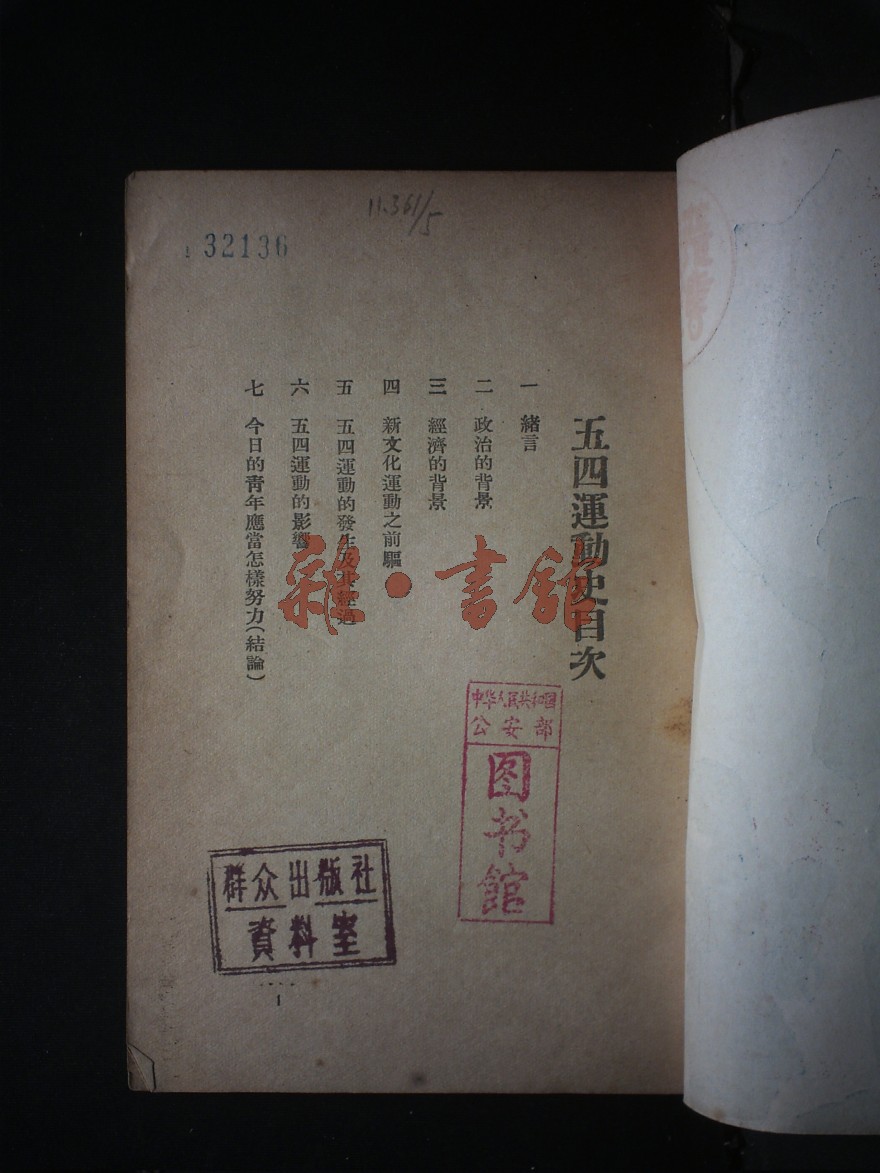 11.361/5
32136
五四運動史目次
一 緒言
二 政治的背景
三 經濟的背景
四 新文化運動之前驅
五 五四運動的發生及其經過
六 五四運動的影響
七 今日的靑年應當怎樣努力(結論)
雜·書館
中华人民共和國
公安部
图书馆
群众出版社
資料室
1